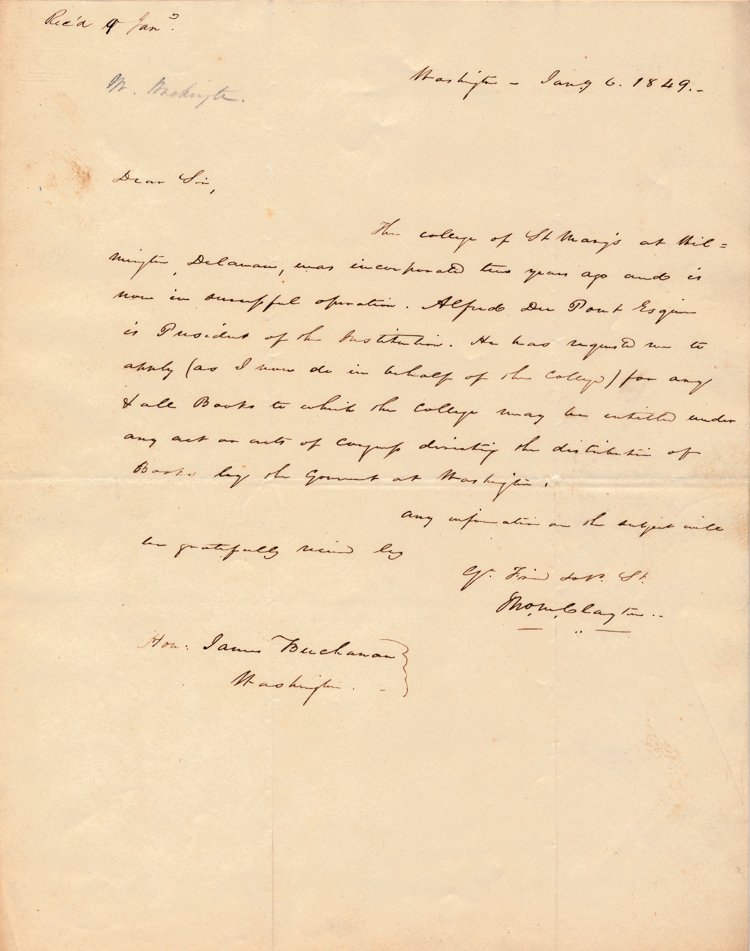 Rec'd 9 Jany.
Washington - Jany 6. 1849.-
Mr. Washington.
Dear Sir,
The college of St Mary's at Wil=
mington, Delaware, was incorporated two years ago and is
now in successful operation. Alfred Du Pont Esquire
is President of the Institution. He has requested me to
apply (as I now do in behalf of the College) for any
& all Books to which the College may be entitled under
any act or acts of Congress directing the distribution of
Books by the Government at Washington.
Any information on the subject will
be gratefully received by
Yr. Friend & ob. St.
Clayton..
Hon: James Buchanan
Washington. -